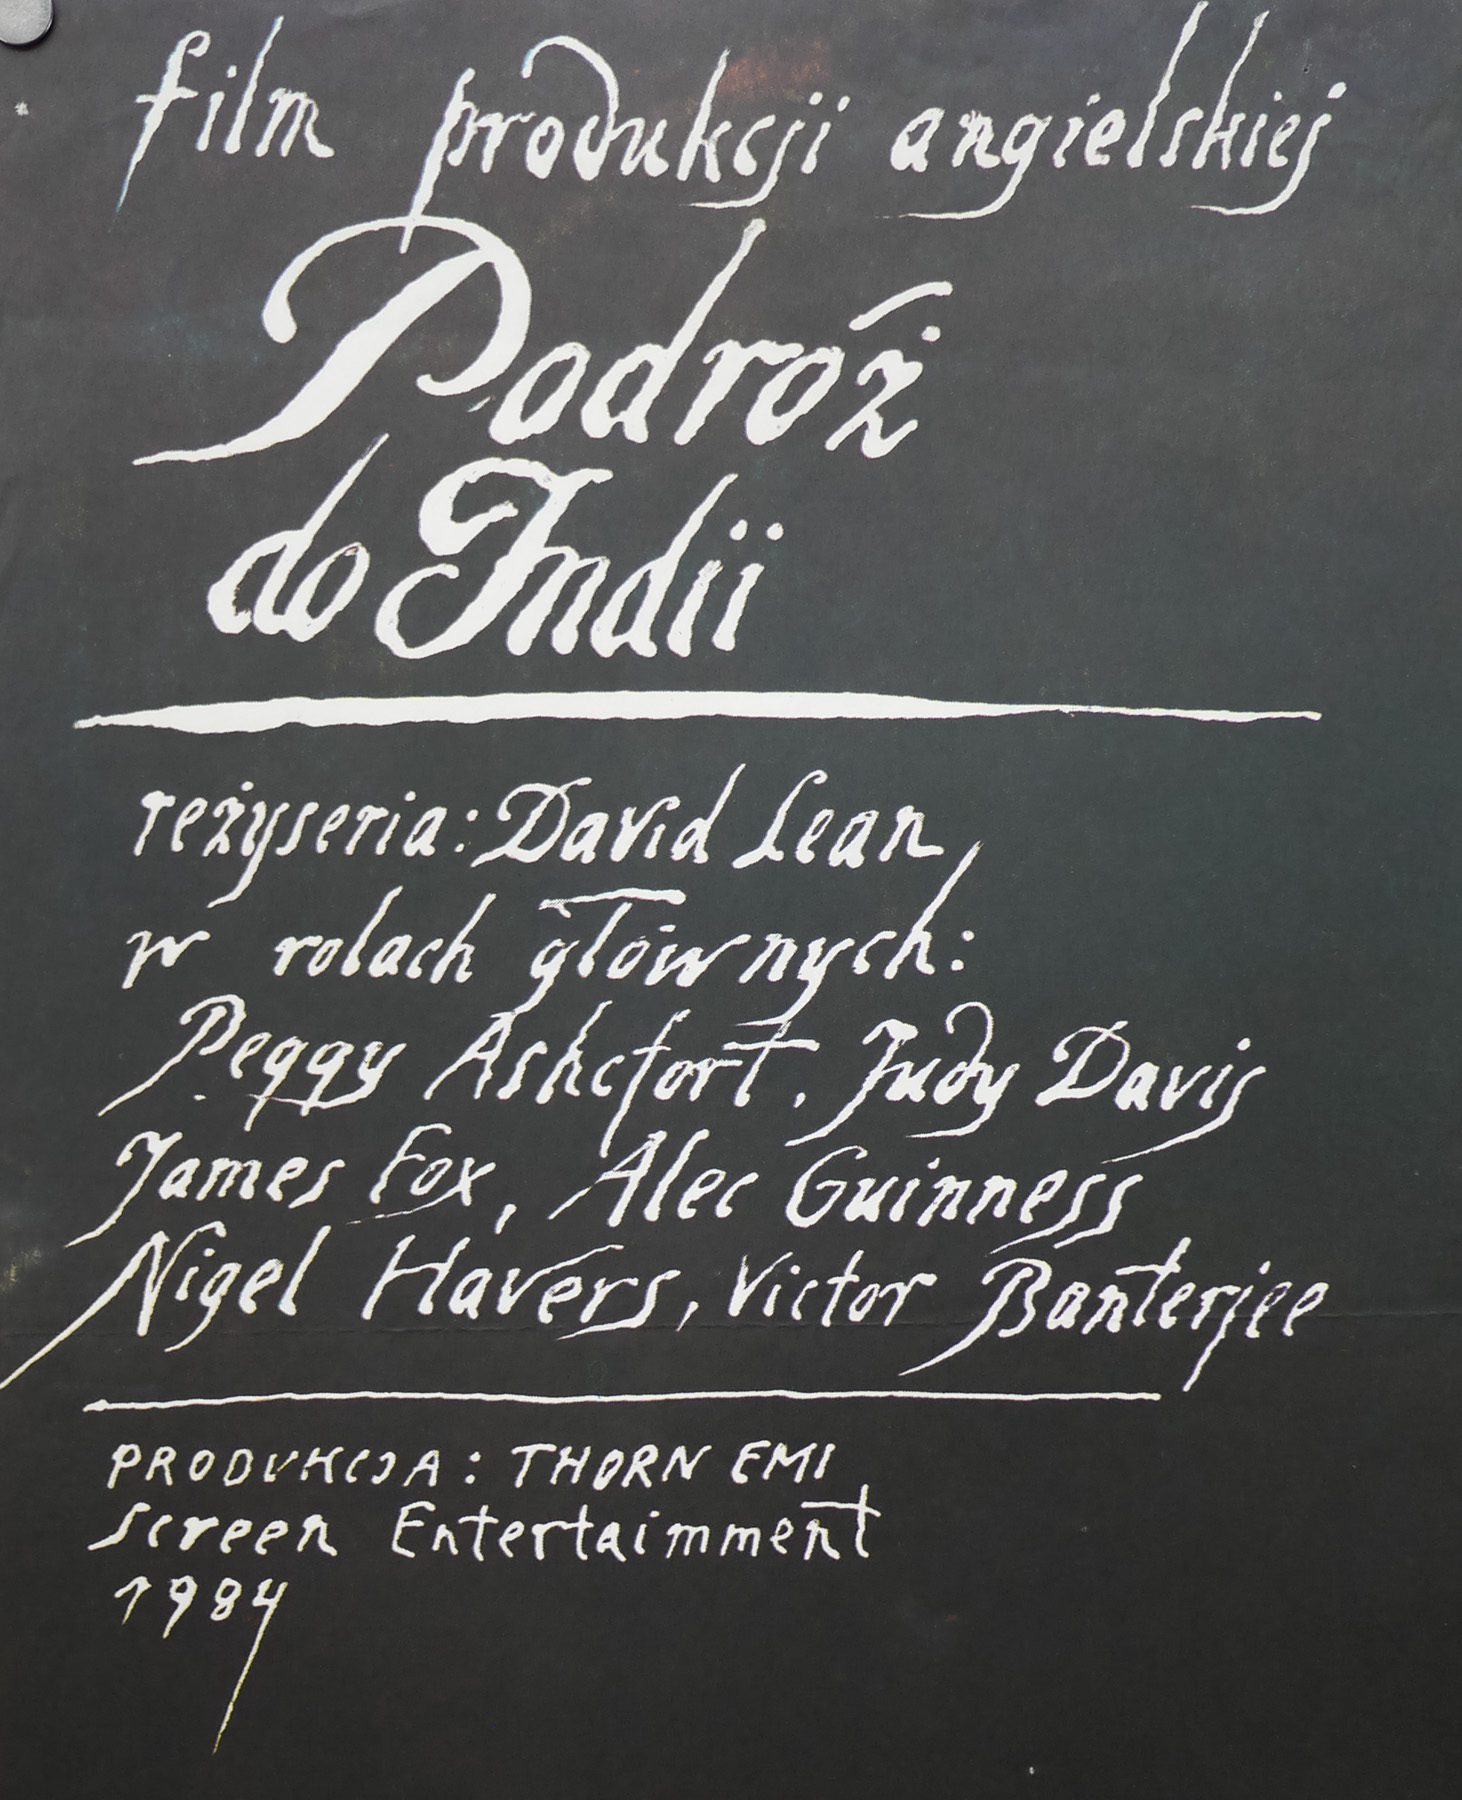 film produkcji angielskiej
Podróż
do Indii
reżyseria: David Lean,
w rolach głównych:
Peggy Ashcfort, Judy Davis
James Fox, Alec Guinness
Nigel Havers, Victor Banterjee
PRODUKCJA: THORN EMI
Screen Entertaimment
1984